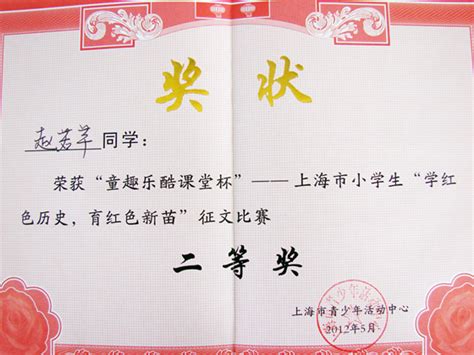 奖状
赵若芊同学：
荣获“童趣乐酷课堂杯”——上海市小学生“学红
色历史，育红色新苗”征文比赛
二等奖
上海市青少年活动中心
2012年5月